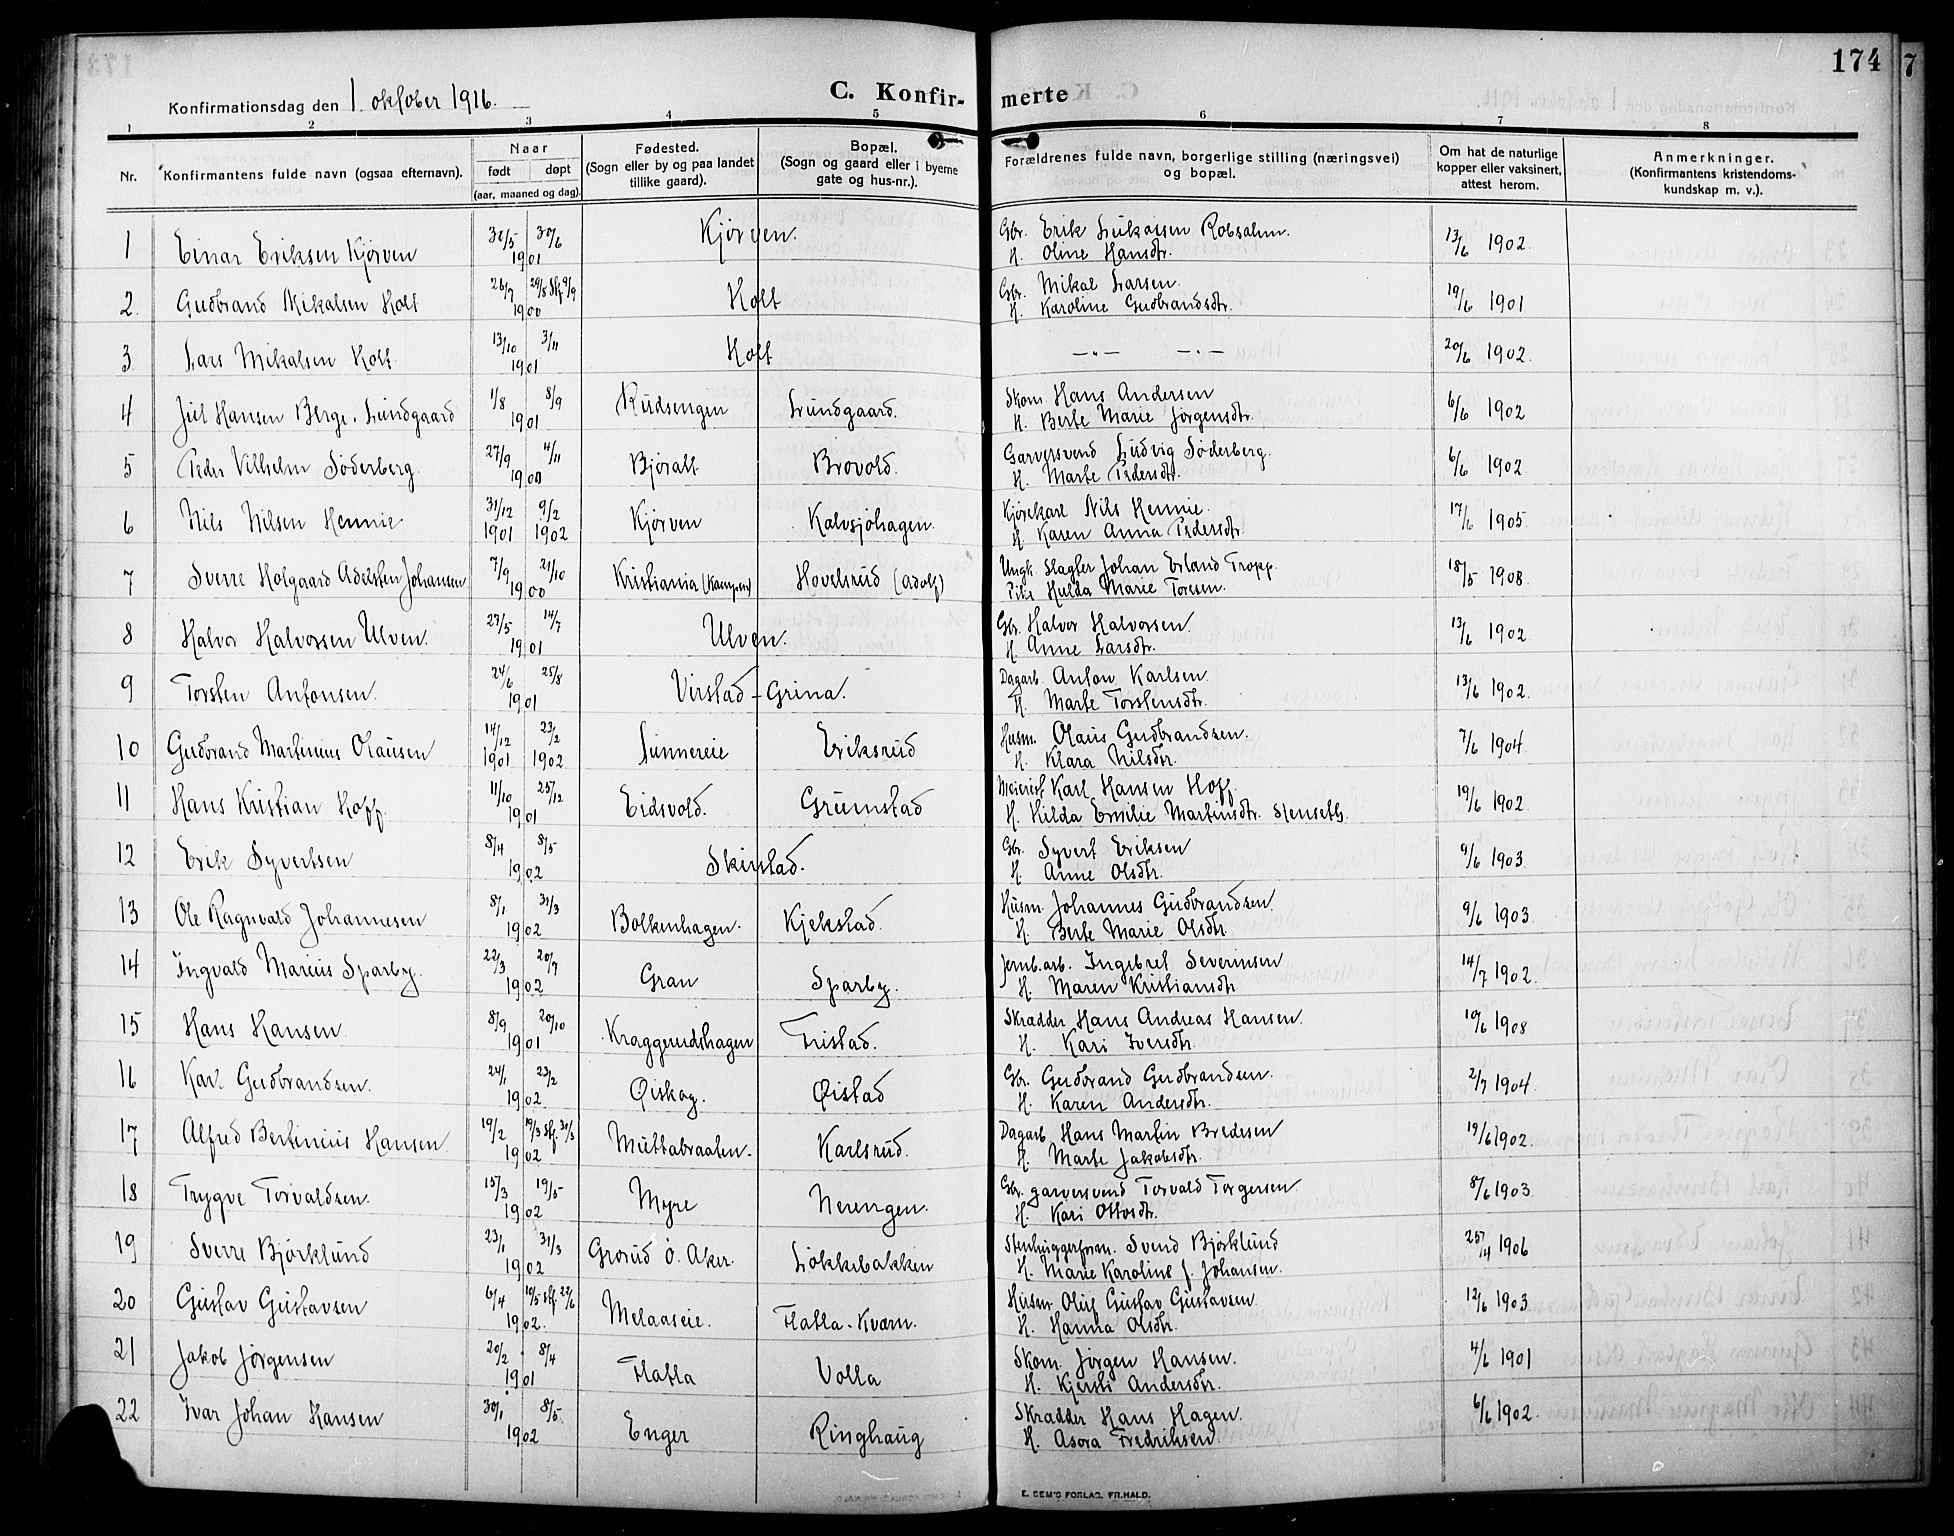 174
7
Konfirmationsdag den 1. oktober 1916.
C. Konfir- merte
1 2 3 4 5 6 7 8
Nr.
Konfirmantens fulde navn (ogsaa efternavn).
Naar
født døpt
(aar, maaned og dag).
Fødested.
(Sogn eller by og paa landet
tillike gaard).
Bopæl.
(Sogn og gaard eller i byerne
gate og hus-nr.).
Forældrenes fulde navn, borgerlige stilling (næringsvei)
og bopæl.
Om hat de naturlige
kopper eller vaksinert,
attest herom.
Anmerkninger.
(Konfirmantens kristendoms-
kundskap m. v.).
1 Einar Eriksen Kjørven 30/6 1901 Kjørven. Gbr. Erik Lukassen Robsahm. 13/6 1902.
H. Oline Hansdtr.
2. Gudbrand Mikalsen Holt 26/7 1900 Holt Gbr. Mikal Larsen. 19/6 1901
H. Karoline Gudbrandsdtr.
3 Lars Mikalsen Holt. 13/10 3/11 1901 Holt —"— —"— 20/6 1902.
4 Juel Hansen Berge. Lundgaard 1/8 8/9 1901 Rudsengen Lundgaard. Skom. Hans Andersen 6/6 1902
H. Berte Marie Jørgensdtr.
5 Peder Vilhelm Søderberg. 27/9 4/11 1900 Bjøralt Brovold. Garversvend Ludvig Søderberg. 6/6 1902
H. Marte Pedersdtr.
6 Nils Nilsen Hennie. 31/12 1901 9/2 1902 Kjørven Kalvsjøhagen. Kjørekarl Nils Hennie. 17/6 1905
H. Karen Anna Pedersdtr.
7 Sverre Holgaard Adelsten Johansen 7/9 21/10 1900 Kristiania (Kampen) Hovelsrud (Adolf) Ungk. Slagter Johan Erland Tropp. 18/5 1908
Pike Hulda Marie Toresen.
8 Halvor Halvorsen Ulven. 27/5 14/7 1901 Ulven. Gbr. Halvor Halvorsen. 13/6 1902
H. Anne Larsdtr.
9 Torsten Antonsen. 24/6 25/8 1901 Virstad - Grina. Dagarb. Anton Karlsen. 13/6 1902.
H. Marte Torstensdtr.
10 Gudbrand Martinius Olausen 14/12 1901 23/2 1902 Sunnereie Eriksrud Husm. Olaus Gudbrandsen. 7/6 1904
H. Klara Nilsdtr.
11 Hans Kristian Hoff. 11/10 25/12 1901 Eidsvold. Grumstad Meierist Karl Hansen Hoff. 19/6 1902
H. Hilda Emilie Martinsdtr. Stenseth.
12 Erik Syvertsen 8/4 8/5 1902 Skirstad. Gbr. Syvert Eriksen 9/6 1903
H. Anne Olsdtr.
13 Ole Ragnvald Johannesen 8/1 31/3 1902 Bolkenhagen. Kjekstad. Husm. Johannes Gudbrandsen. 9/6 1903
H. Berte Marie Olsdtr.
14 Ingvald Marius Sparby. 22/3 20/7 1902 Gran Sparby. Jernb.arb. Ingebret Severinsen 14/7 1902.
H. Maren Kristiansdtr
15 Hans Hansen. 8/9 20/10 1901 Kraggerudshagen Tristad. Skradder Hans Andreas Hansen. 19/6 1908
H. Kari Iversdtr.
16 Karl Gudbrandsen. 24/1 23/2 1902 Øiskog. Øistad Gbr. Gudbrand Gudbrandsen. 2/7 1904
H. Karen Andersdtr.
17 Alfred Bertinius Hansen 19/2 19/3 Stf. 31/3 1902 Muttabraaten. Karlsrud. Dagarb. Hans Martin Bredesen 19/6 1902.
H. Marte Jakobsdtr.
18 Trygve Torvaldsen. 15/3 19/5 1902 Myre Nerengen. Gbr. garversvend Torvald Torgersen. 8/6 1903
H. Kari Ottosdtr.
19 Sverre Bjørklund 23/1 31/3 1902 Grorud Ø. Aker. Løkkebakken Stenhuggerform. Svend Bjørklund 25/4 1906
H. Marie Karoline f. Johansen.
20 Gustav Gustavsen 6/4 1902. Melaaseie. Flatla-Kværn. Husm Oluf Gustav Gustavsen. 12/6 1903.
H. Hanna Olsdtr.
21 Jakob Jørgensen 20/2 8/4 1901 Flatla Volla Skom. Jørgen Hansen. 4/6 1901
H. Kjersti Andersdtr.
22 Ivar Johan Hansen 30/1 8/5 1902 Enger Ringhaug Skradder Hans Hagen. 6/6 1902.
H. Asora Fredriksen.
E. SEM'S FORLAG, FR.HALD.